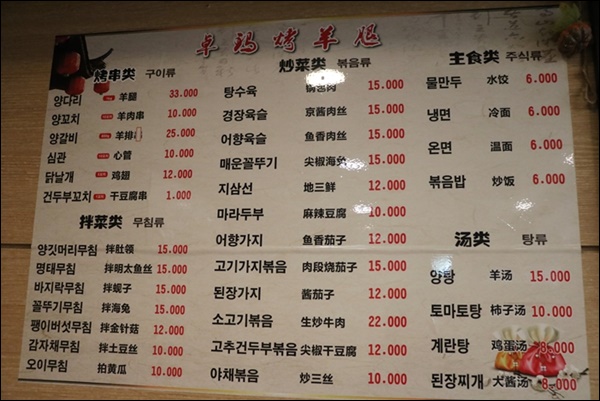 卓玛烤羊腿
烤串类 구이류
양다리 羊腿 33.000
양꼬치 羊肉串 10.000
양갈비 羊排 25.000
심관 心管 10.000
닭날개 鸡翅 12.000
건두부꼬치 干豆腐串 1.000
拌菜类 무침류
양깃머리무침 拌肚领 15.000
명태무침 拌明太鱼丝 15.000
바지락무침 拌蚬子 15.000
꼴뚜기무침 拌海兔 15.000
팽이버섯무침 拌金针菇 12.000
감자채무침 拌土豆丝 10.000
오이무침 拍黄瓜 10.000
炒菜类 볶음류
탕수육 锅包肉 15.000
경장육슬 京酱肉丝 15.000
어향육슬 鱼香肉丝 15.000
매운꼴뚜기 尖椒海兔 15.000
지삼선 地三鲜 12.000
마라두부 麻辣豆腐 10.000
어향가지 鱼香茄子 12.000
고기가지볶음 肉段烧茄子 15.000
된장가지 酱茄子 12.000
소고기볶음 生炒牛肉 22.000
고추건두부볶음 尖椒干豆腐 12.000
야채볶음 炒三丝 10.000
主食类 주식류
물만두 水饺 6.000
냉면 冷面 6.000
온면 温面 6.000
볶음밥 炒饭 6.000
汤类 탕류
양탕 羊汤 15.000
토마토탕 柿子汤 10.000
계란탕 鸡蛋汤 8.000
된장찌개 大酱汤 8.000